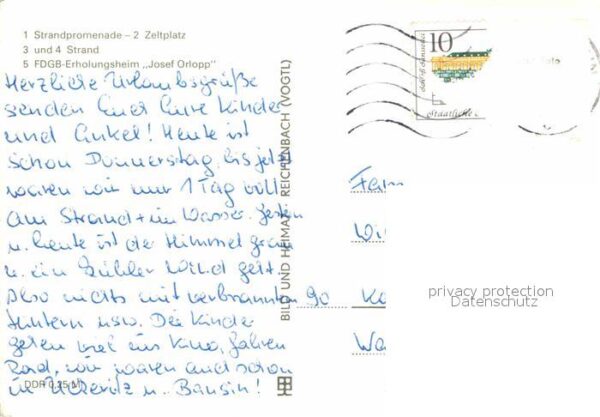 1 Strandpromenade – 2 Zeltplatz
3 und 4 Strand
5 FDGB-Erholungsheim „Josef Orlopp"
Herzliche Urlaubsgrüße
senden Euch Eure Kinder
und Enkel! Heute ist
schon Donnerstag, bis jetzt
waren wir nur 1 Tag voll
am Strand + im Wasser. Gestern
u. heute ist der Himmel grau
u. ein kühler Wind geht.
Also nichts mit verbrannten
Hintern usw. Die Kinder
gehen viel ins Kino, fahren
Rad, wir waren auch schon
in Ückeritz u. Bansin!
DDR 0,25 M
BILD UND HEIMAT REICHENBACH (VOGTL)
10
Staatliche
Fam
90
privacy protection
Datenschutz